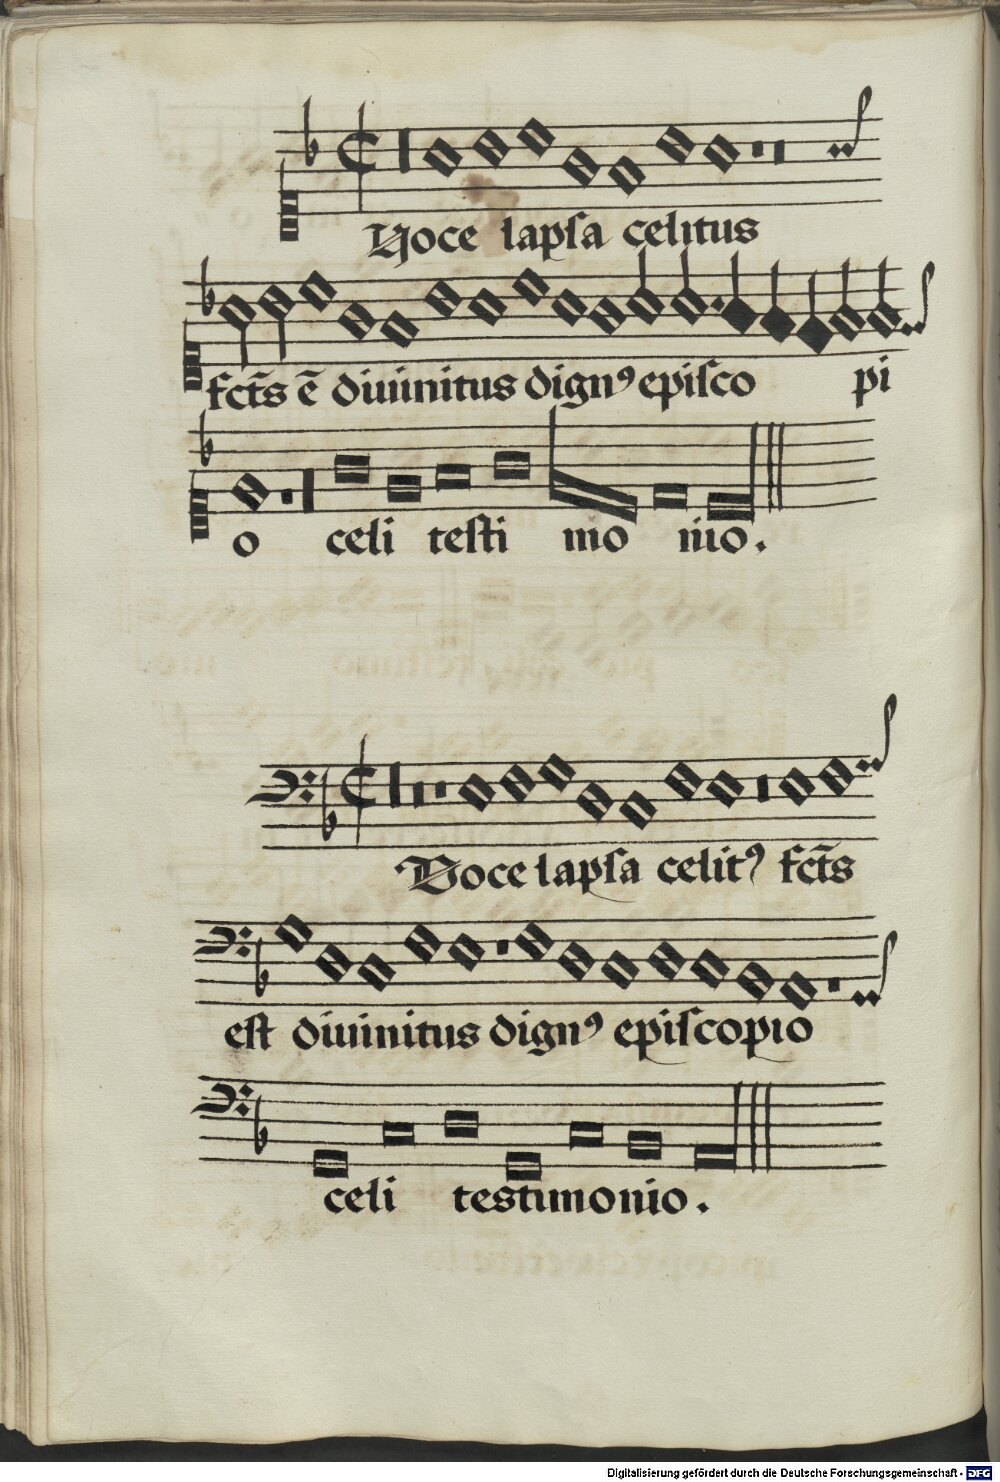 Voce lapsa celitus
fct̃s ẽ diuinitus dignꝯ episco pi
o celi testi mo nio.
Voce lapsa celitꝯ fct̃s
est diuinitus dignꝯ episcopio
celi testimonio.
Digitalisierung gefördert durch die Deutsche Forschungsgemeinschaft - DFG